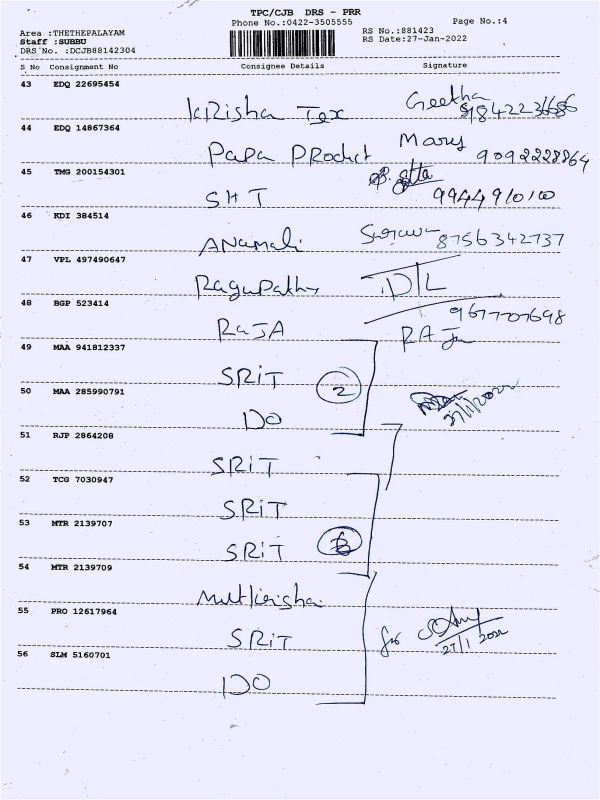 TPC/CJB DRS - PRR
Phone No.:0422-3505555
Page No.:4
Area :THETHEPALAYAM
Staff :SUBBU
DRS No. :DCJB88142304
RS No.:881423
RS Date:27-Jan-2022
S No Consignment No Consignee Details Signature
43 EDQ 22695454
Kirisha Tex Geetha
44 EDQ 14867364
Papa Product Mary 9092228864
45 TMG 200154301
SHT 9944910100
46 KDI 384514
Anamali 8756342737
47 VPL 497490647
Ragupathy D/L
48 BGP 523414
RaJA 9677707698
RAJa
49 MAA 941812337
SRiT 2
50 MAA 285990791
DO 27/1/2022
51 RJP 2864208
SRiT
52 TCG 7030947
SRiT
53 MTR 2139707
SRiT
54 MTR 2139709
55 PRO 12617964
SRiT for
27/1 2022
56 SLM 5160701
DO